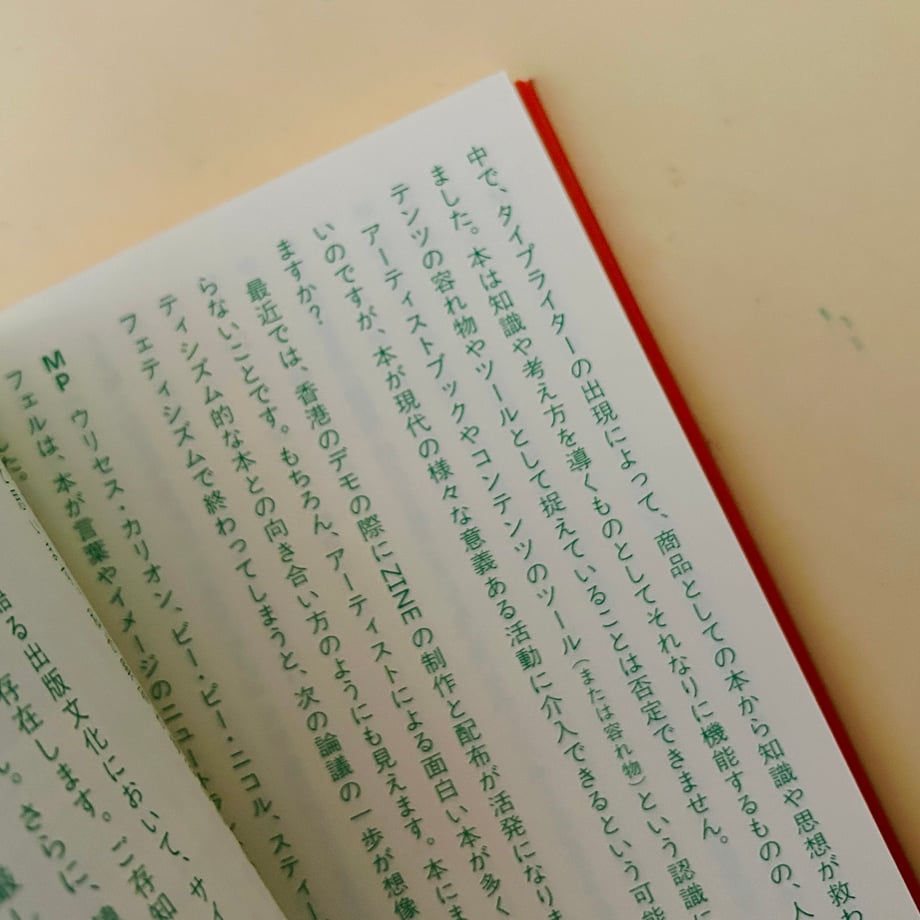 中で、タイプライターの出現によって、商品としての本から知識や思想が救わ
ました。本は知識や考え方を導くものとしてそれなりに機能するものの、人
テンツの容れ物やツールとして捉えていることは否定できません。
アーティストブックやコンテンツのツール(または容れ物)という認識に
いのですが、本が現代の様々な意義ある活動に介入できるという可能
ますか?
最近では、香港のデモの際にZINEの制作と配布が活発になりま
らないことです。もちろん、アーティストによる面白い本が多く
ティシズム的な本との向き合い方のようにも見えます。本にま
フェティシズムで終わってしまうと、次の論議の一歩が想像
MP ウリセス・カリオン、ビー・ピー・ニコル、スティー
フェルは、本が言葉やイメージのニュー
る出版文化において、サイ
存在します。ご存知
さらに、